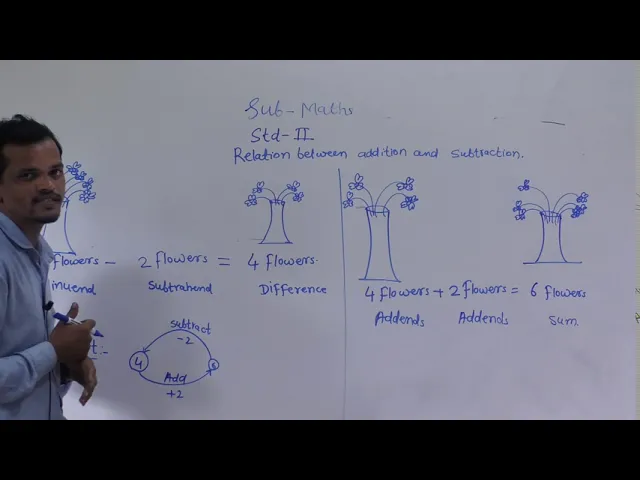 Sub-Maths
Std-II
Relation between addition and subtraction.
flowers - 2 flowers = 4 flowers.
inuend Subtrahend Difference
4 flowers + 2 flowers = 6 flowers
Addends Addends Sum.
t:-
subtract
-2
4
Add
+2